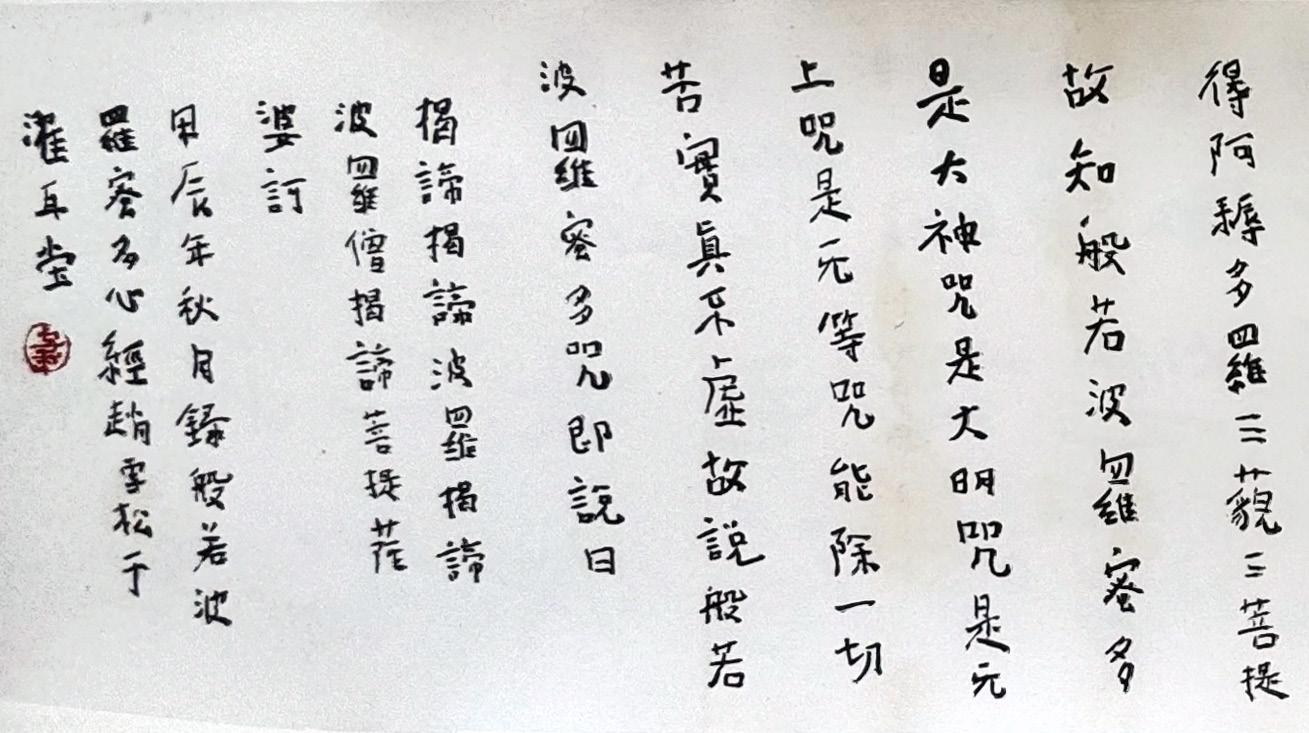 得阿耨多羅三藐三菩提
故知般若波羅蜜多
是大神咒是大明咒是元
上咒是元等咒能除一切
苦實真不虛故說般若
波羅蜜多咒即說曰
揭諦揭諦波羅揭諦
波羅僧揭諦菩提薩
婆訶
甲辰年秋月錄般若波
羅蜜多心經趙雪松于
濯耳堂